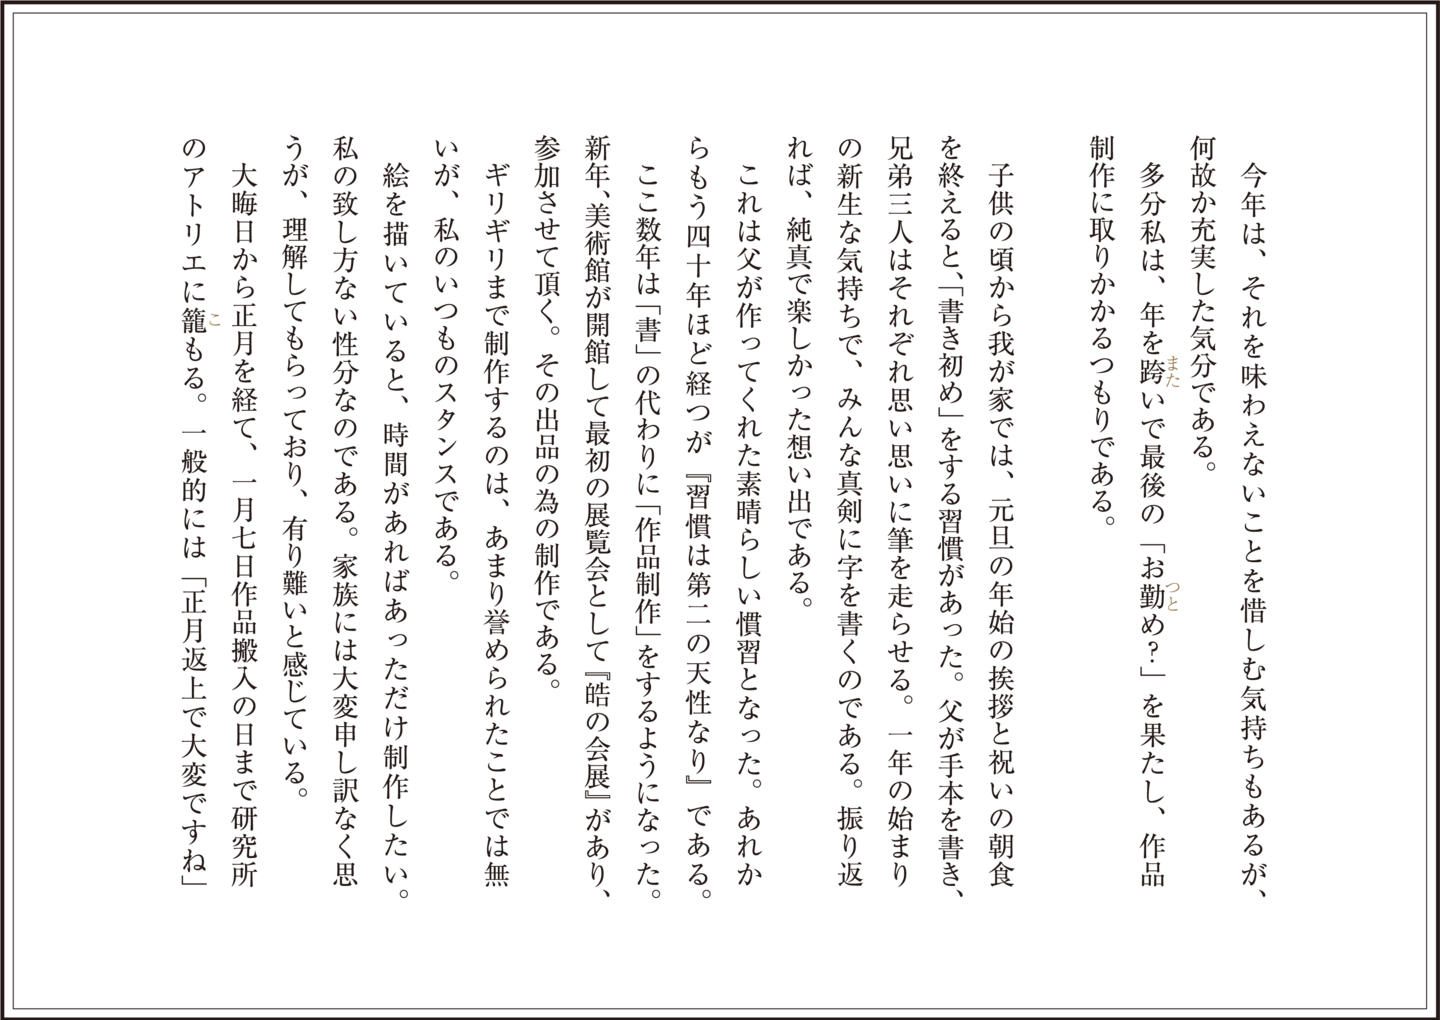 今年は、それを味わえないことを惜しむ気持ちもあるが、
何故か充実した気分である。
　多分私は、年を跨いで最後の「お勤め？」を果たし、作品
制作に取りかかるつもりである。
　子供の頃から我が家では、元旦の年始の挨拶と祝いの朝食
を終えると、「書き初め」をする習慣があった。父が手本を書き、
兄弟三人はそれぞれ思い思いに筆を走らせる。一年の始まり
の新生な気持ちで、みんな真剣に字を書くのである。振り返
れば、純真で楽しかった想い出である。
　これは父が作ってくれた素晴らしい慣習となった。あれか
らもう四十年ほど経つが『習慣は第二の天性なり』である。
　ここ数年は「書」の代わりに「作品制作」をするようになった。
新年、美術館が開館して最初の展覧会として『皓の会展』があり、
参加させて頂く。その出品の為の制作である。
　ギリギリまで制作するのは、あまり誉められたことでは無
いが、私のいつものスタンスである。
　絵を描いていると、時間があればあっただけ制作したい。
私の致し方ない性分なのである。家族には大変申し訳なく思
うが、理解してもらっており、有り難いと感じている。
　大晦日から正月を経て、一月七日作品搬入の日まで研究所
のアトリエに籠もる。一般的には「正月返上で大変ですね」
また
つと
こ